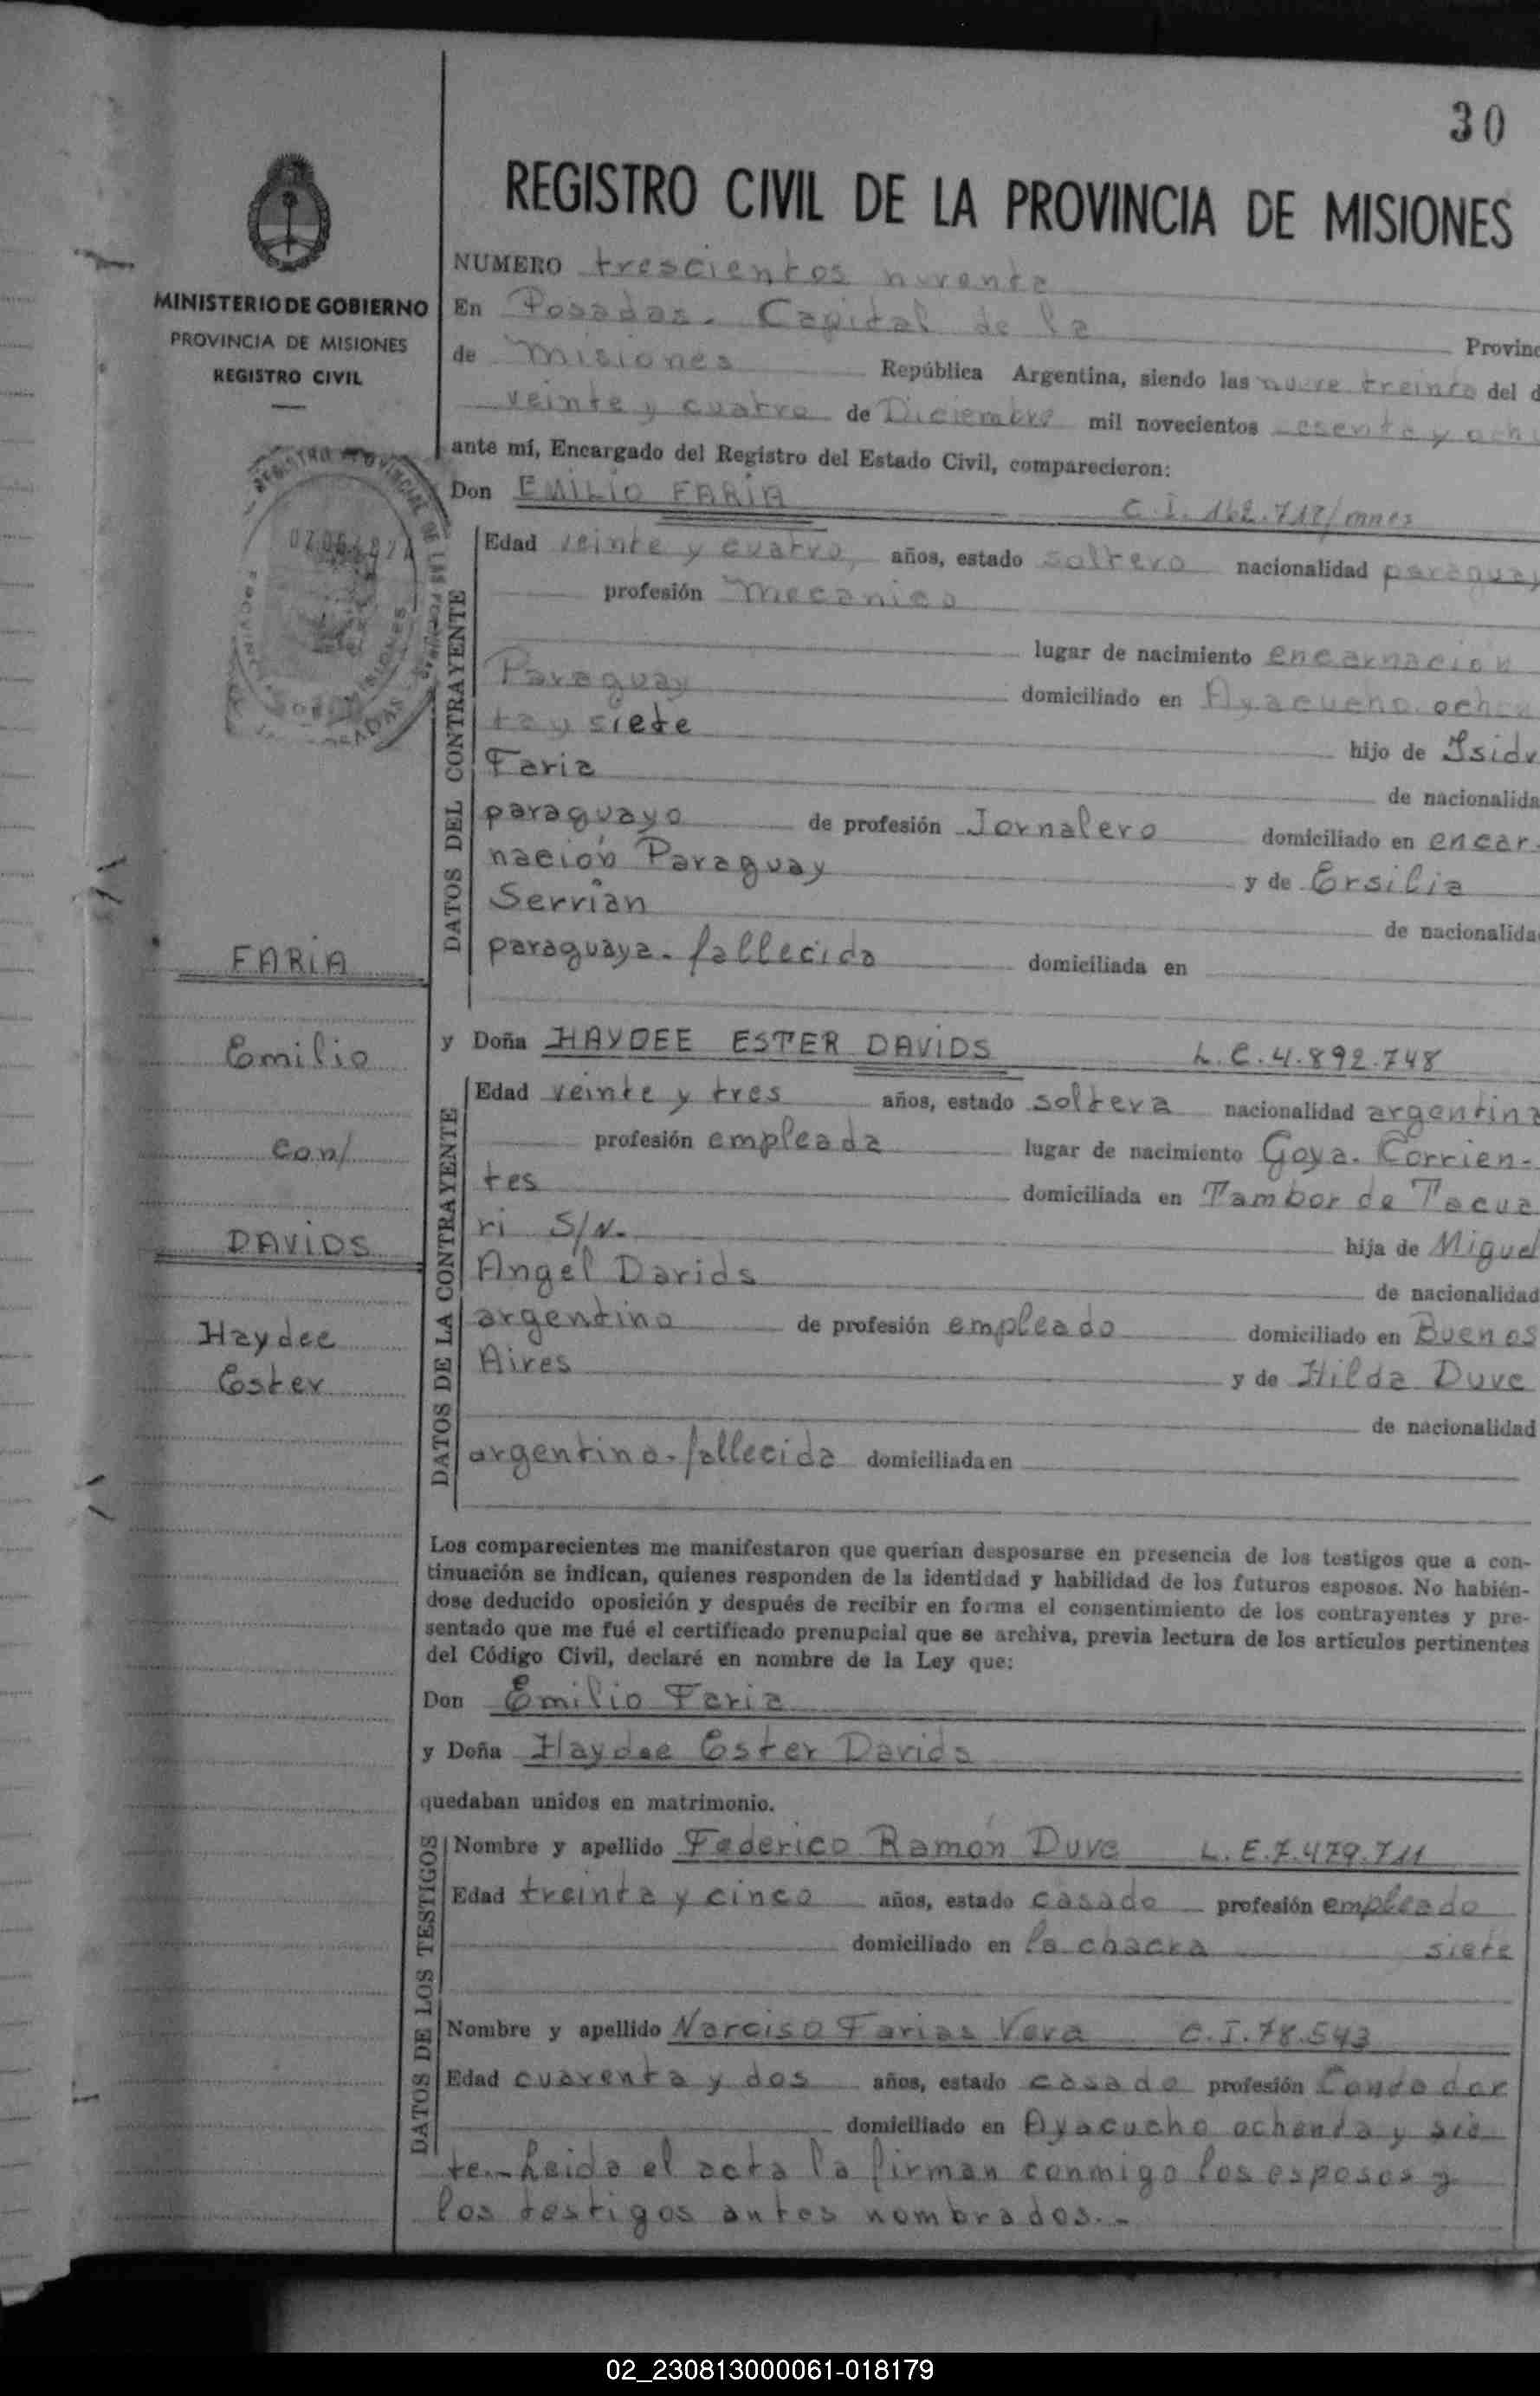 30
REGISTRO CIVIL DE LA PROVINCIA DE MISIONES
MINISTERIO DE GOBIERNO
PROVINCIA DE MISIONES
REGISTRO CIVIL
NUMERO trescientos noventa
En Posadas. Capital de la Provinc
de Misiones República Argentina, siendo las nueve treinta del d
veinte y cuatro de Diciembre mil novecientos
ante mí, Encargado del Registro del Estado Civil, comparecieron:
Don EMILIO FARIA C.I. 162.718/mnes
DATOS DEL CONTRAYENTE
Edad veinte y cuatro, años, estado soltero nacionalidad paraguay
profesión Mecanico
lugar de nacimiento encarnacion
Paraguay domiciliado en Ayacucho ochen
ta y siete hijo de Isidr
Faria de nacionalida
paraguayo de profesión Jornalero domiciliado en encar-
nación Paraguay y de Ersilia
Serrian de nacionalida
paraguaya. fallecida domiciliada en
FARIA
Emilio
con/
DAVIDS
Haydee
Ester
y Doña HAYDEE ESTER DAVIDS L.C. 4.892.748
DATOS DE LA CONTRAYENTE
Edad veinte y tres años, estado soltera nacionalidad argentina
profesión empleada lugar de nacimiento Goya. Corrien-
tes domiciliada en Tambor de Tacua
ri S/N. hija de Miguel
Angel Davids de nacionalidad
argentino de profesión empleado domiciliado en Buenos
Aires y de Hilda Duve
de nacionalidad
argentina. fallecida domiciliada en
Los comparecientes me manifestaron que querían desposarse en presencia de los testigos que a con-
tinuación se indican, quienes responden de la identidad y habilidad de los futuros esposos. No habién-
dose deducido oposición y después de recibir en forma el consentimiento de los contrayentes y pre-
sentado que me fué el certificado prenupcial que se archiva, previa lectura de los artículos pertinentes
del Código Civil, declaré en nombre de la Ley que:
Don Emilio Faria
y Doña Haydee Ester Davids
quedaban unidos en matrimonio.
DATOS DE LOS TESTIGOS
Nombre y apellido Federico Ramón Duve L.E. 7.479.711
Edad treinta y cinco años, estado casado profesión empleado
domiciliado en la chacra siete
Nombre y apellido Narciso Farias Vera C.I. 78.543
Edad cuarenta y dos años, estado casado profesión Contador
domiciliado en Ayacucho ochenta y sie
te.- Leida el acta la firman conmigo los esposos y
los testigos antes nombrados.-
02_230813000061-018179